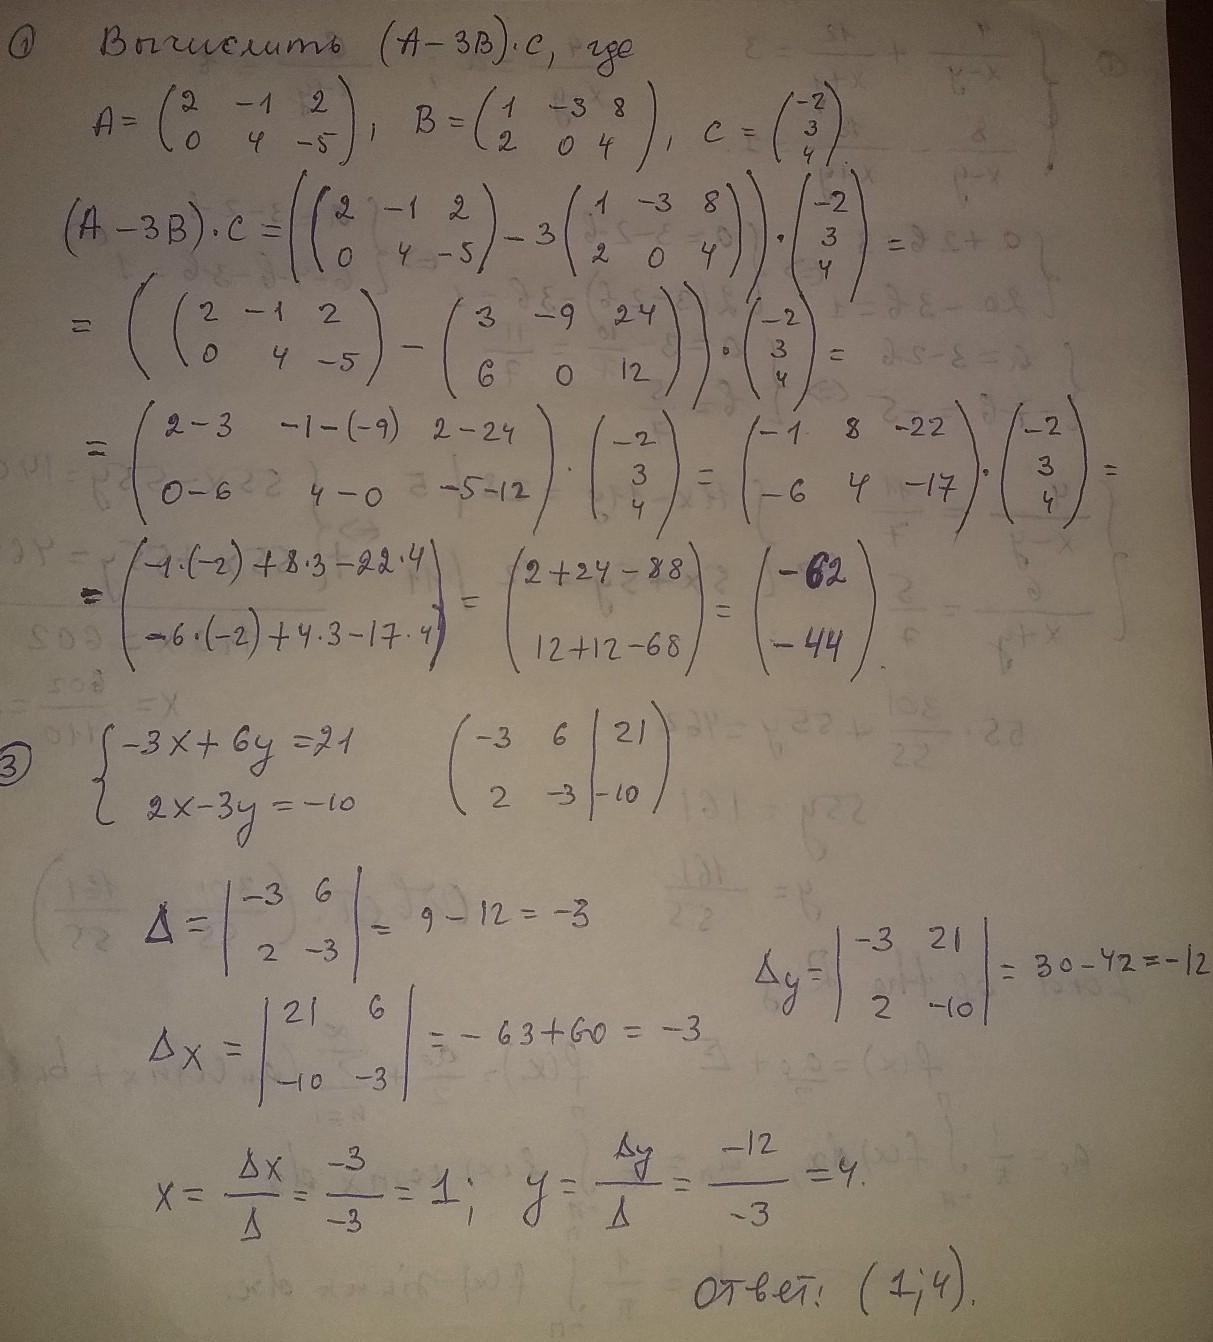 ① Вычислить (A-3B)·C, где
A = (2 -1 2 / 0 4 -5), B = (1 -3 8 / 2 0 4), C = (-2 / 3 / 4).
(A-3B)·C = ((2 -1 2 / 0 4 -5) - 3(1 -3 8 / 2 0 4))·(-2 / 3 / 4) =
= ((2 -1 2 / 0 4 -5) - (3 -9 24 / 6 0 12))·(-2 / 3 / 4) =
= (2-3 -1-(-9) 2-24 / 0-6 4-0 -5-12)·(-2 / 3 / 4) = (-1 8 -22 / -6 4 -17)·(-2 / 3 / 4) =
= (-1·(-2)+8·3-22·4 / -6·(-2)+4·3-17·4) = (2+24-88 / 12+12-68) = (-62 / -44).
③ {-3x+6y=21 / 2x-3y=-10 (-3 6 | 21 / 2 -3 | -10)
Δ = |-3 6 / 2 -3| = 9-12 = -3
Δy = |-3 21 / 2 -10| = 30-42 = -12
Δx = |21 6 / -10 -3| = -63+60 = -3
x = Δx/Δ = -3/-3 = 1; y = Δy/Δ = -12/-3 = 4.
Ответ: (1;4).